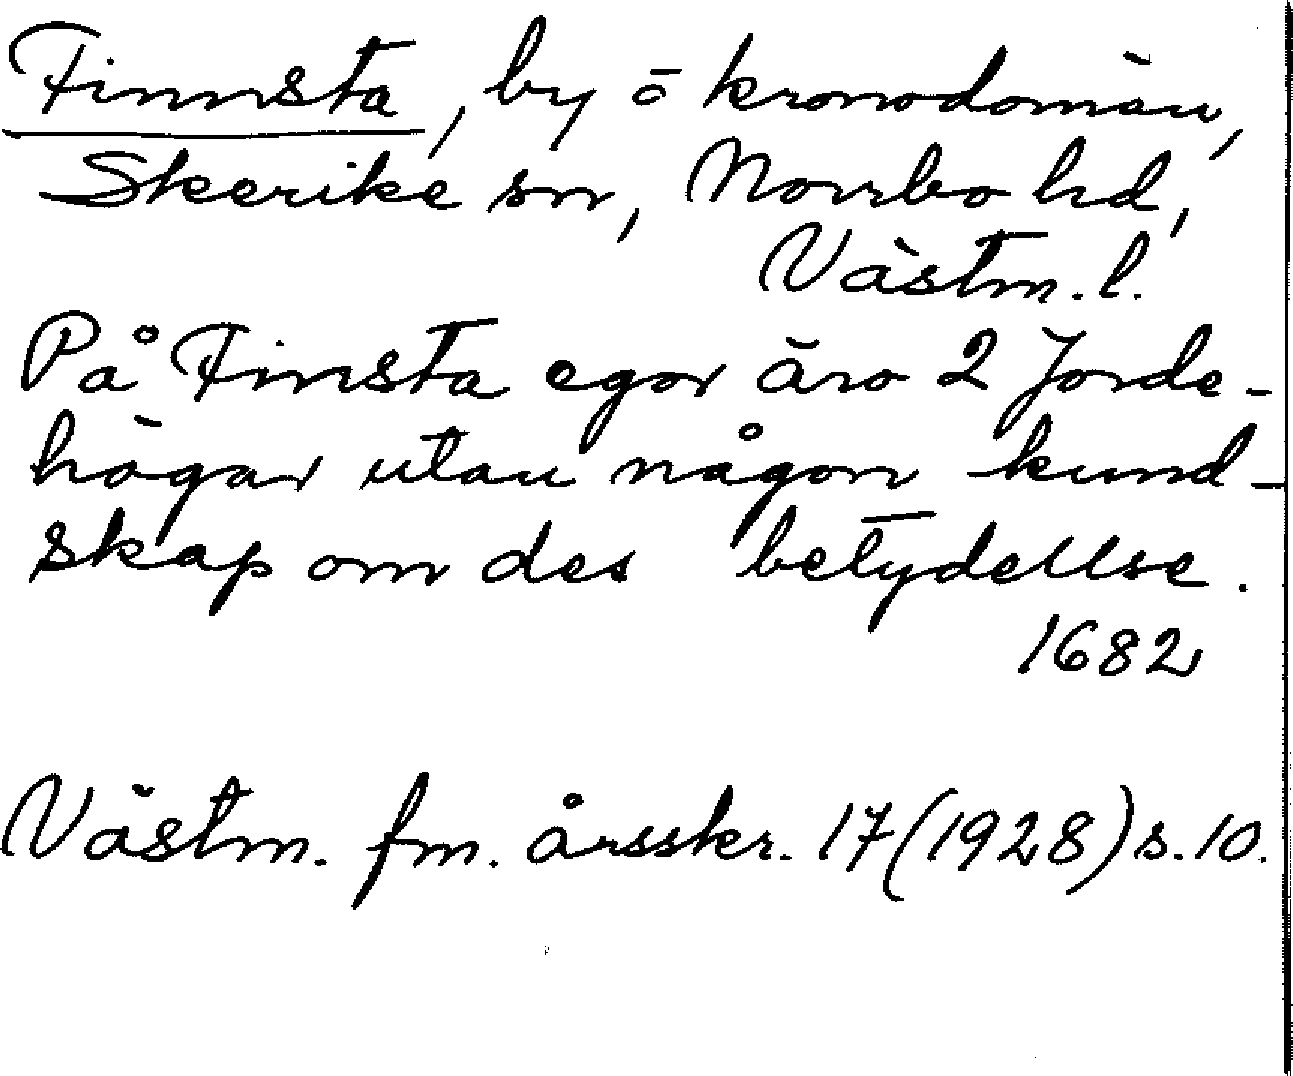 Finnsta, by o kronodomän,
Skerike sn, Norrbo hd,
Västm. l.
På Finsta egor äro 2 Jorde-
högar utan någon kund-
skap om des betydellse.
1682
Västm. fm. årsskr. 17(1928) s. 10.